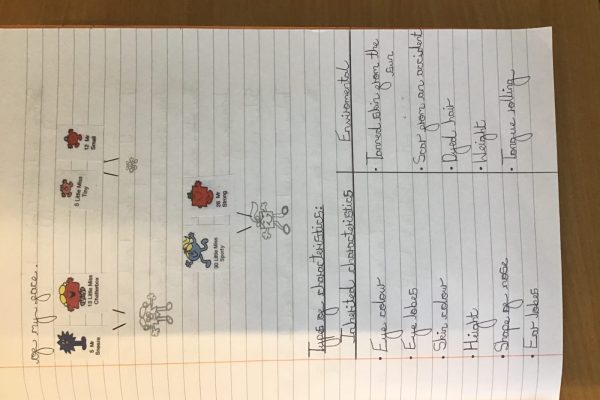 of my face.
5 Mr
Sneeze
13 Little Miss
Chatterbox
5 Little Miss
Tiny
12 Mr
Small
30 Little Miss
Sporty
26 Mr
Strong
Types of characteristics:
Inherited characteristics
Enviromental
• Eye colour
• Eye lobes
• Skin colour
• Height
• Shape of nose
• Ear lobes
• Tanned skin from the
sun
• Scar from an accident
• Dyed hair
• Weight
• Tongue rolling